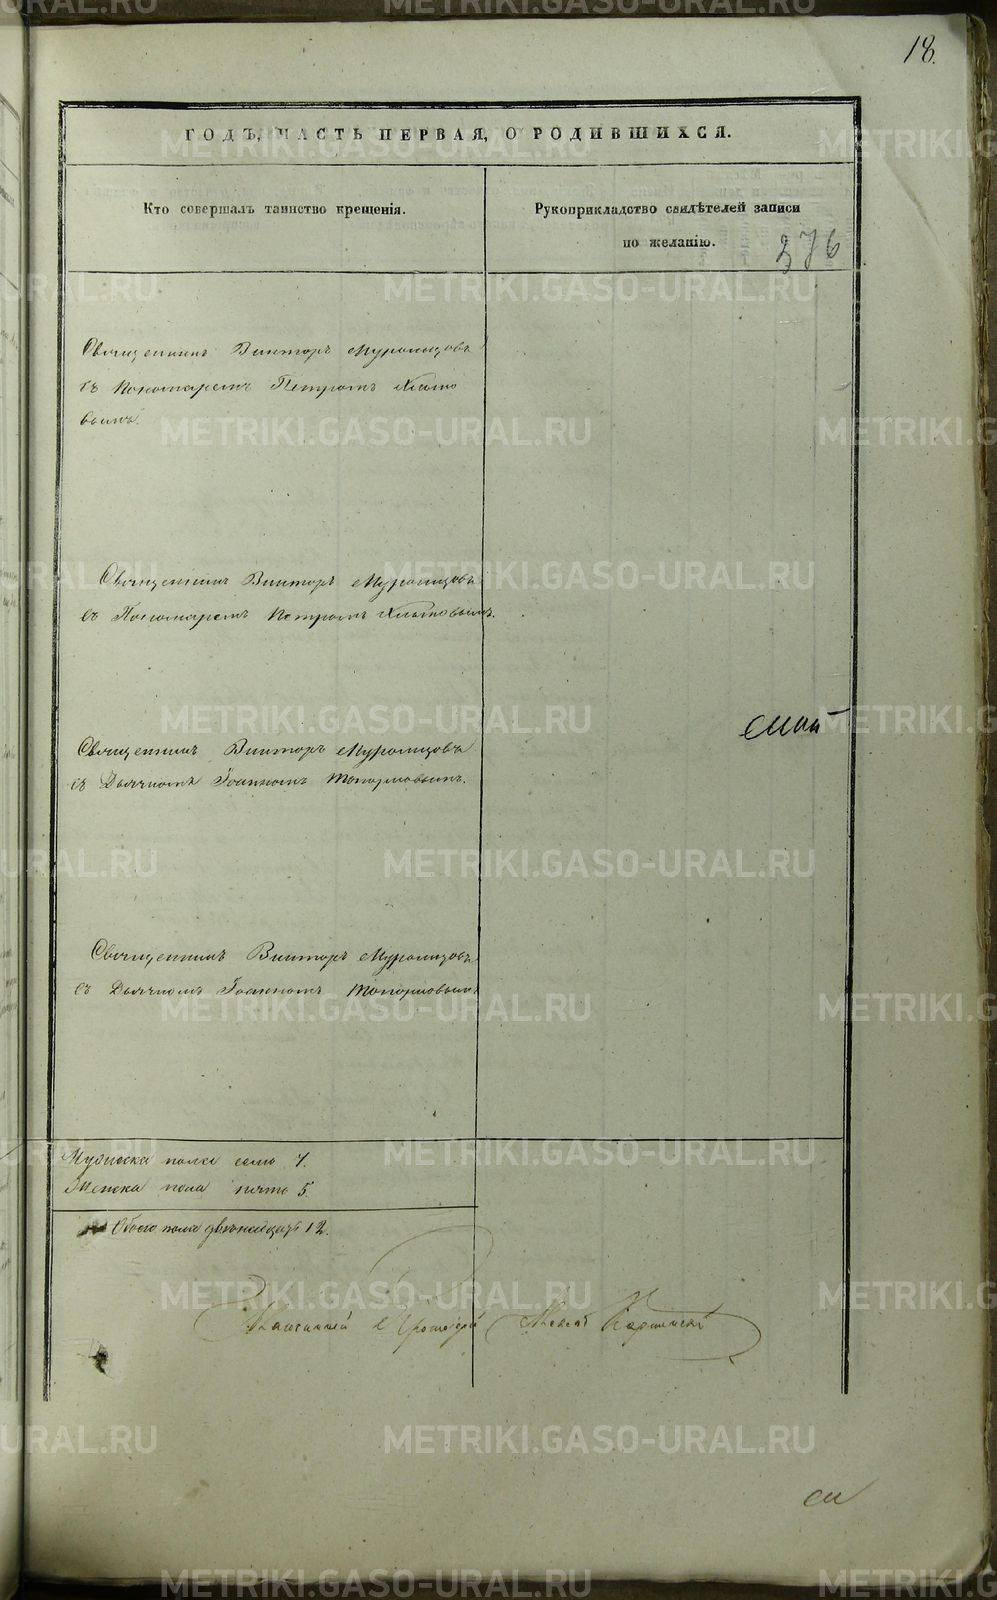 18.
ГОДЪ, ЧАСТЬ ПЕРВАЯ, О РОДИВШИХСЯ.
Кто совершалъ таинство крещенія.
Рукоприкладство свидѣтелей записи
по желанію.
376
Священникъ Викторъ Муромцовъ
съ Пономаремъ Петромъ Хлыно
вымъ.
Священникъ Викторъ Муромцовъ
съ Пономаремъ Петромъ Хлыновымъ.
Май
Священникъ Викторъ Муромцовъ
съ Дьячкомъ Іоанномъ Топорковымъ.
Священникъ Викторъ Муромцовъ
съ Дьячкомъ Іоанномъ Топорковымъ
Мужеска пола семь 7.
Женска пола пять 5.
Обоего пола двѣнадцать 12.
METRIKI.GASO-URAL.RU